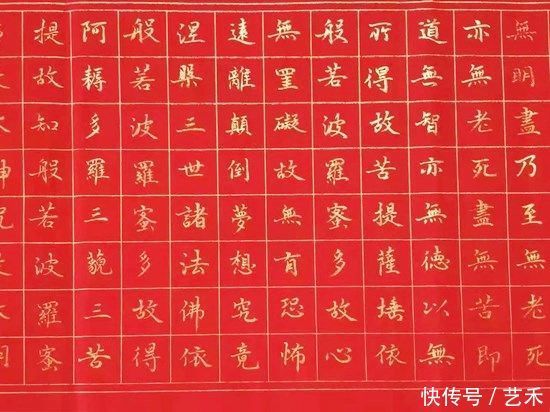 無明盡乃至無老死
亦無老死盡無苦即
道無智亦無德以無
所得故苦提薩埵依
般若波羅蜜多故心
無罣礙故無有恐怖
遠離顛倒夢想究竟
涅槃三世諸法佛依
般若波羅蜜多故得
阿耨多羅三藐三苦
提故知般若波羅蜜
快传号／艺禾